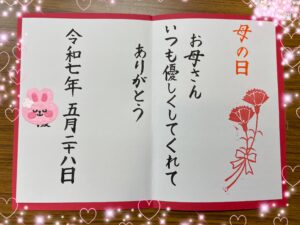 母の日
お母さん
いつも優しくしてくれて
ありがとう
令和七年 五月二十八日